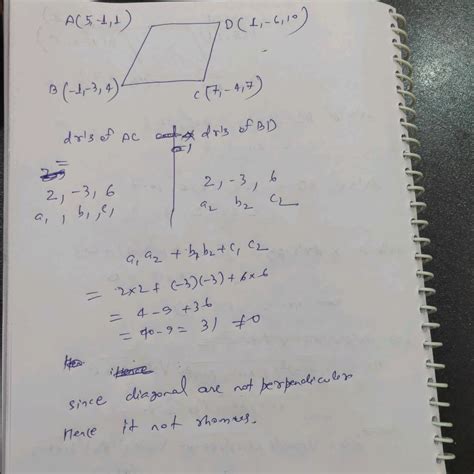 A(5,-1,1) D(1,-6,10)
B(-1,-3,4) C(7,-4,7)
dr's of AC dr's of BD
=
2, -3, 6 2, -3, 6
a₁, b₁, c₁ a₂ b₂ c₂
a₁a₂ + b₁b₂ + c₁c₂
= 2×2+ (-3)(-3) + 6×6
= 4 - 9 + 36
= 40 - 9 = 31 ≠0
since diagonal are not perpendicular
Hence it not rhomus.